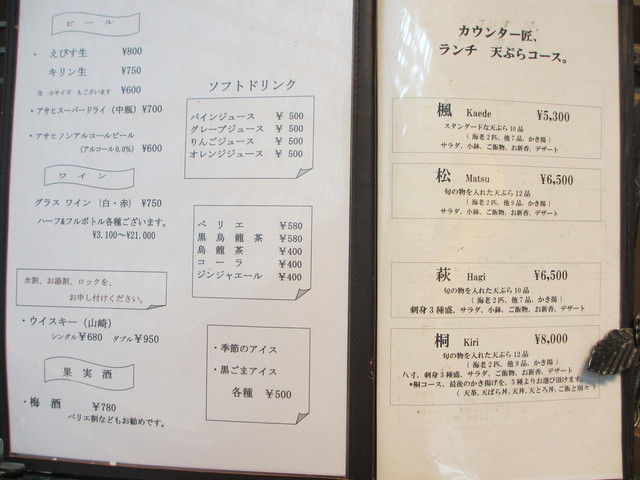 ビール
・ えびす生 ¥800
キリン生 ¥750
生 小サイズ もございます ¥600
・アサヒスーパードライ (中瓶) ¥700
・アサヒノンアルコールビール
(アルコール0.0%) ¥600
ワイン
グラス ワイン (白・赤) ¥750
ハーフ&フルボトル各種ございます。
¥3.100〜¥21.000
水割、お湯割、ロックを、
お申し付けください。
・ウイスキー (山崎)
シングル¥680 ダブル¥950
果実酒
・梅酒 ¥780
ペリエ割などもお勧めです。
ソフトドリンク
パインジュース ¥ 500
グレープジュース ¥ 500
りんごジュース ¥ 500
オレンジジュース ¥ 500
ペリエ ¥580
黒烏龍茶 ¥580
烏龍茶 ¥400
コーラ ¥400
ジンジャエール ¥400
・季節のアイス
・黒ごまアイス
各種 ¥500
カウンター匠、
ランチ 天ぷらコース。
楓 Kaede ¥5,300
スタンダードな天ぷら10品
( 海老2匹、他7品、かき揚 )
サラダ、小鉢、ご飯物、お新香、デザート
松 Matsu ¥6,500
旬の物を入れた天ぷら12品
( 海老2匹、他9品、かき揚 )
サラダ、小鉢、ご飯物、お新香、デザート
萩 Hagi ¥6,500
旬の物を入れた天ぷら10品
( 海老2匹、他7品、かき揚 )
刺身3種盛、サラダ、小鉢、ご飯物、お新香、デザート
桐 Kiri ¥8,000
旬の物を入れた天ぷら12品
( 海老2匹、他9品、かき揚 )
八寸、刺身3種盛、サラダ、ご飯物、お新香、デザート
*桐コース、最後のかき揚げを、5種よりお選び頂けます。
( 天茶、天ばら丼、天丼、天とろ丼、ご飯と別々 )